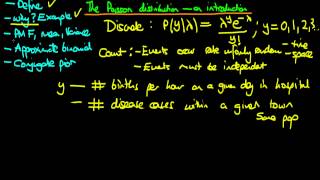 - Define
- why? Example
- PMF, mean, Variance
- Approximate binomial
- Conjugate prior
The Poisson distribution - an introduction
Discrete : P(y|λ) = λ^y e^-λ / y! ; y = 0, 1, 2, 3...
Count : - Events occur rate uniformly random - time
space
- Events must be independent
y — # births per hour on a given day in hospital
— # disease cases within a given town
Same pop